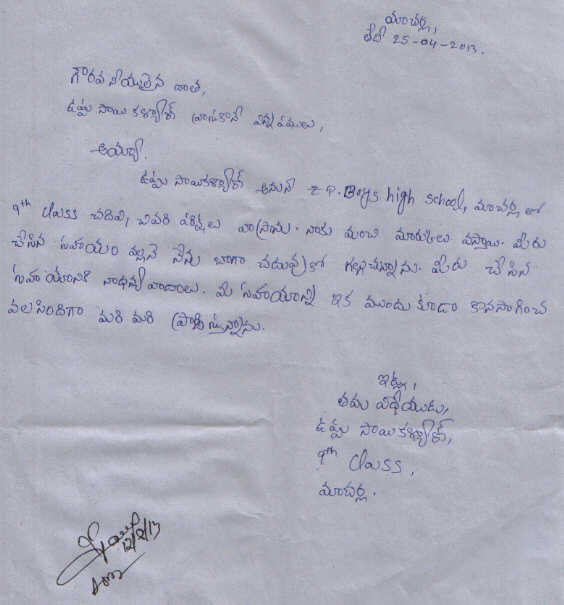 మాచర్ల,
తేది 25-04-2013.
గౌరవనీయులైన దాత,
ఉప్పు సాయికళ్యాణ్ వ్రాసుకొనే విన్నపములు,
అయ్యా.
ఉప్పు సాయికళ్యాణ్ అనునే z.p. Boys high school, మాచర్ల లో
9th class చదివి, చివరి పరీక్షలు వ్రాసాను. నాకు మంచి మార్కులు వస్తాయి. మీరు
చేసిన సహాయం వల్లనే నేను బాగా చదువుకో గల్గుచున్నాను. మీరు చేసిన
సహాయానికి నాధన్యవాదాలు. మీ సహాయాన్ని ఇక ముందు కూడా కొనసాగించ
వలసిందిగా మరి మరి ప్రార్థిస్తున్నాను.
ఇట్లు,
తమ విధేయుడు,
ఉప్పు సాయికళ్యాణ్,
9th class,
మాచర్ల.
12/8/13